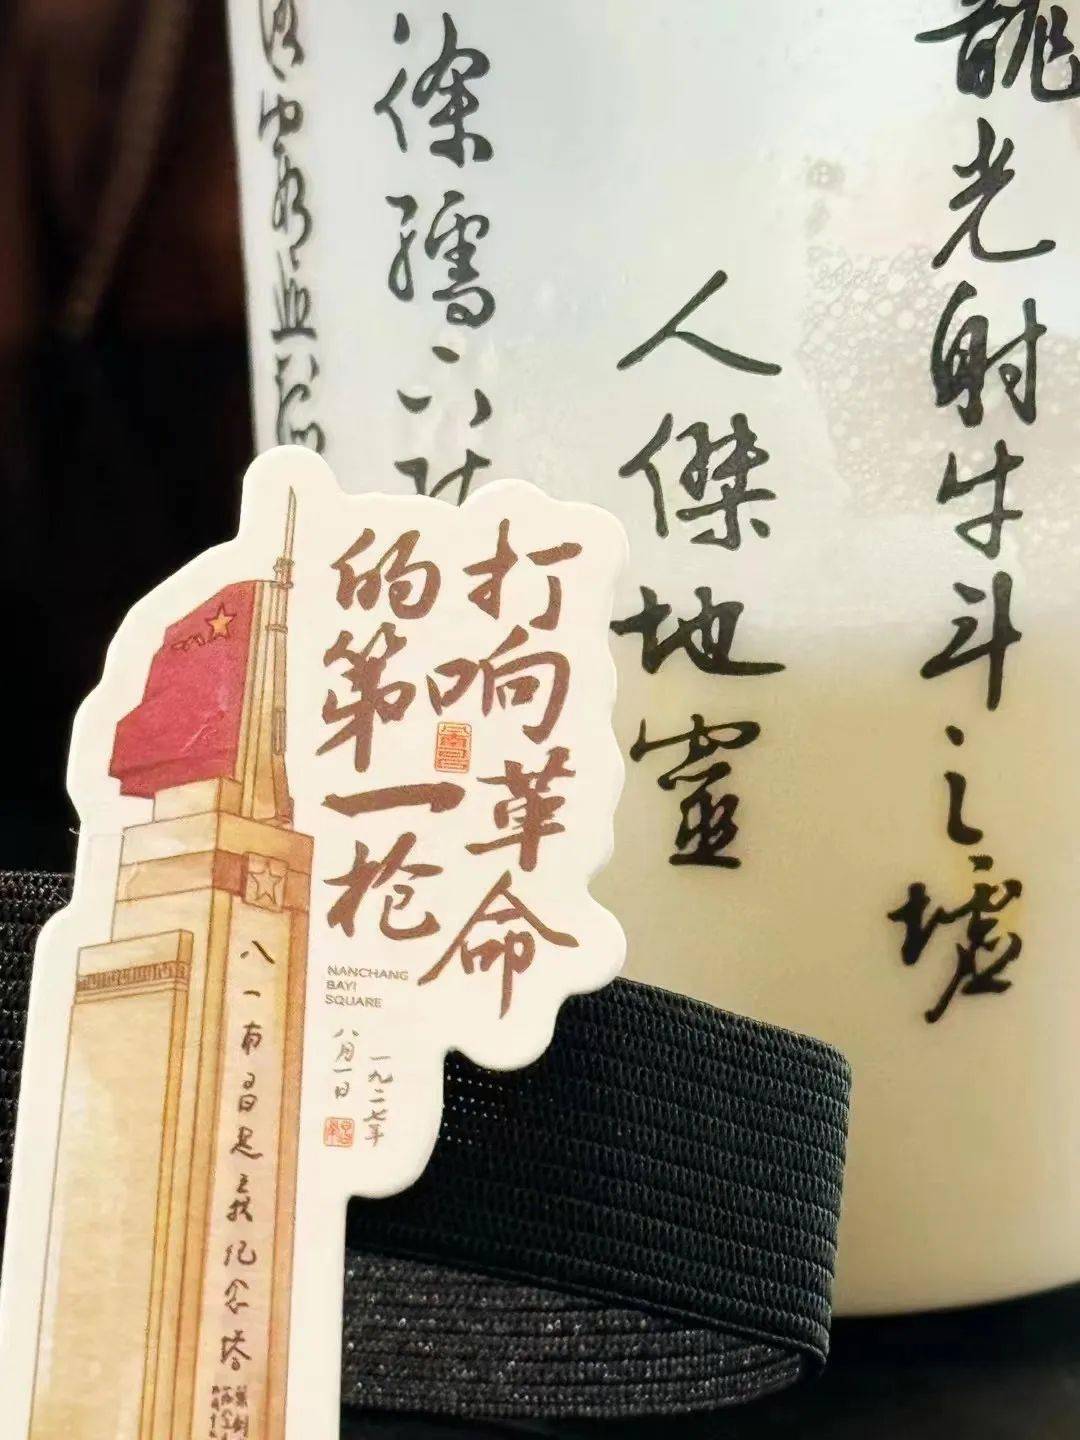 龍光射牛斗之墟
人傑地靈
徐孺下
打响革命
的第一枪
NANCHANG
BAYI
SQUARE
一九二七年
八月一日
八一南昌起義纪念塔